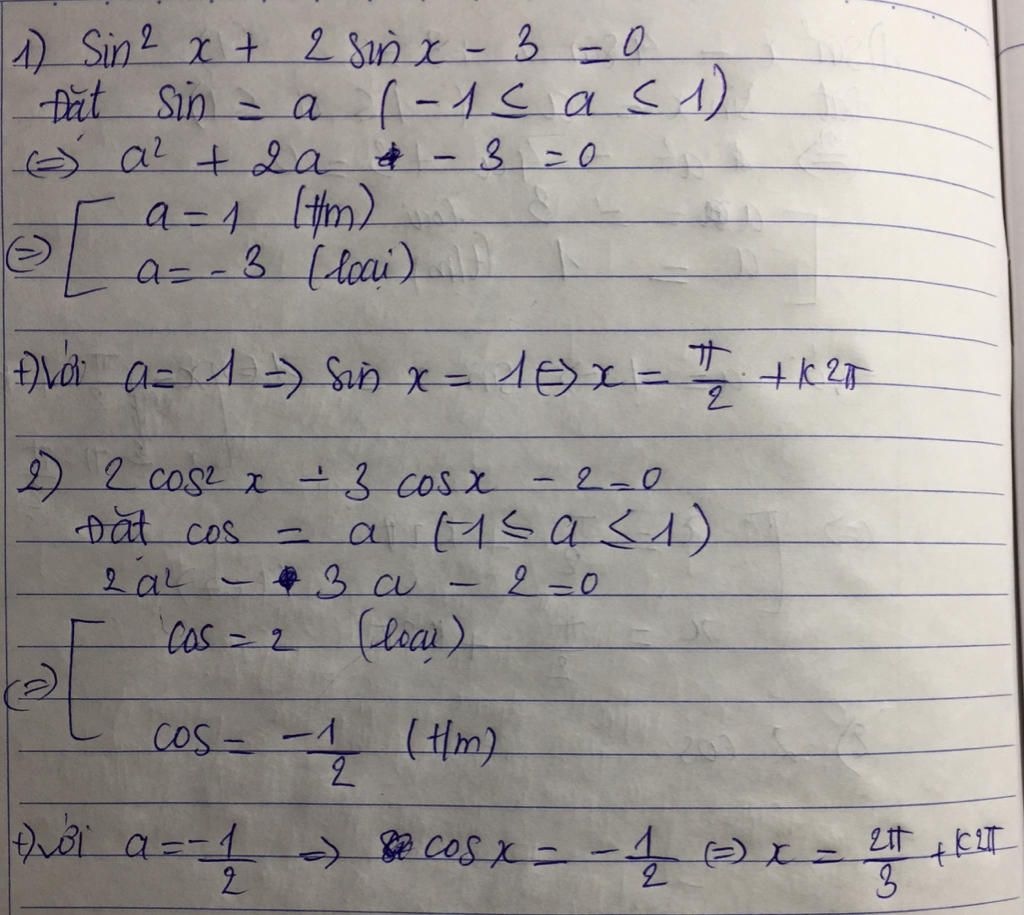 1) Sin² x + 2 sin x - 3 = 0
Đặt sin = a (-1 ≤ a ≤ 1)
(=) a² + 2a - 3 = 0
(=) [ a = 1 (t/m)
a = -3 (loại)
+) Với a = 1 => sin x = 1 (=) x = π/2 + k2π
2) 2 cos² x - 3 cos x - 2 = 0
Đặt cos = a (-1 ≤ a ≤ 1)
2a² - 3a - 2 = 0
(=) [ cos = 2 (loại)
cos = -1/2 (t/m)
+) Với a = -1/2 => cos x = -1/2 (=) x = 2π/3 + k2π